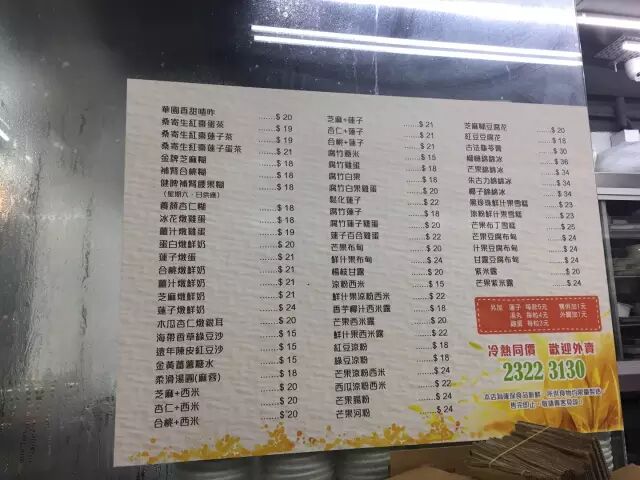 華園香甜喳咋 ......$ 20
桑寄生紅棗蛋茶 ......$ 19
桑寄生紅棗蓮子茶 ......$ 19
桑寄生紅棗蓮子蛋茶 ......$ 21
金牌芝麻糊 ......$ 18
補腎合桃糊 ......$ 18
健脾補腎腰果糊 ......$ 18
(星期六、日供應)
養顏杏仁糊 ......$ 18
冰花燉雞蛋 ......$ 18
薑汁燉雞蛋 ......$ 19
蛋白燉鮮奶 ......$ 20
蓮子燉蛋 ......$ 21
合桃燉鮮奶 ......$ 21
薑汁燉鮮奶 ......$ 21
芝麻燉鮮奶 ......$ 21
蓮子燉鮮奶 ......$ 24
木瓜杏仁燉銀耳 ......$ 20
海帶香草綠豆沙 ......$ 15
遠年陳皮紅豆沙 ......$ 15
金黃蕃薯糖水 ......$ 15
柔滑湯圓(麻蓉) ......$ 20
芝麻+西米 ......$ 20
杏仁+西米 ......$ 20
合桃+西米 ......$ 20
芝麻+蓮子 ......$ 21
杏仁+蓮子 ......$ 21
合桃+蓮子 ......$ 21
腐竹薏米 ......$ 15
腐竹雞蛋 ......$ 18
腐竹白果 ......$ 18
腐竹白果雞蛋 ......$ 20
鬆化蓮子 ......$ 22
腐竹蓮子 ......$ 18
腐竹蓮子雞蛋 ......$ 20
蓮子百合雞蛋 ......$ 22
芒果布甸 ......$ 20
鮮什果布甸 ......$ 24
楊枝甘露 ......$ 20
涼粉西米 ......$ 15
鮮什果涼粉西米 ......$ 22
香芋椰汁西米露 ......$ 15
芒果西米露 ......$ 20
鮮什果西米露 ......$ 22
紅豆涼粉 ......$ 18
綠豆涼粉 ......$ 18
芒果涼粉西米 ......$ 22
西瓜涼粉西米 ......$ 22
芒果腸粉 ......$ 24
芒果河粉 ......$ 24
芝麻糊豆腐花 ......$ 20
紅豆豆腐花 ......$ 18
古法龜苓膏 ......$ 30
楊柳綿綿冰 ......$ 36
芒果綿綿冰 ......$ 34
朱古力綿綿冰 ......$ 34
椰子綿綿冰 ......$ 34
黑珍珠鮮什果雪糕 ......$ 23
涼粉鮮什果雪糕 ......$ 23
芒果布丁雪糕 ......$ 25
芒果豆腐布甸 ......$ 24
什果豆腐布甸 ......$ 24
甘露豆腐布甸 ......$ 24
紫米露 ......$ 20
芒果紫米露 ......$ 24
另加 蓮子 每款5元 雙併加1元
湯丸 每粒4元 外賣加1元
雞蛋 每粒3元
冷熱同價 歡迎外賣
2322 3130
本店為確保食品新鮮,所供食物均限量製造
售完即止,敬請貴客見諒!